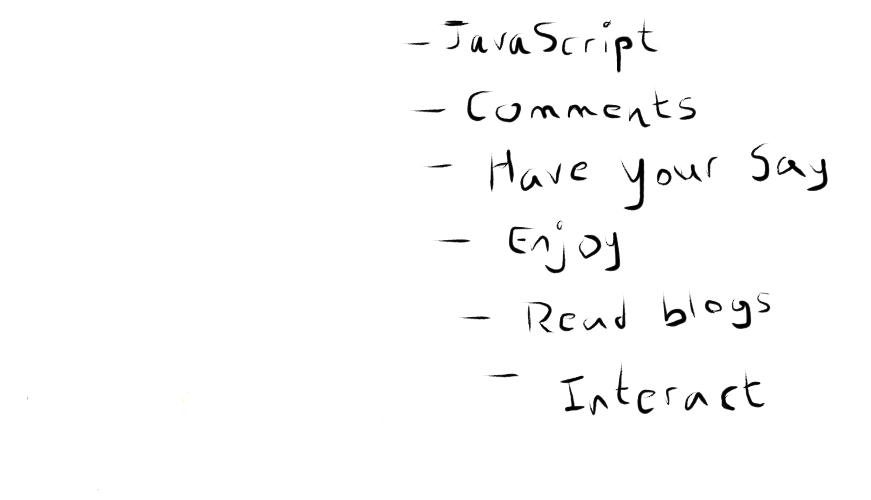 - JavaScript
- Comments
- Have your say
- Enjoy
- Read blogs
- Interact